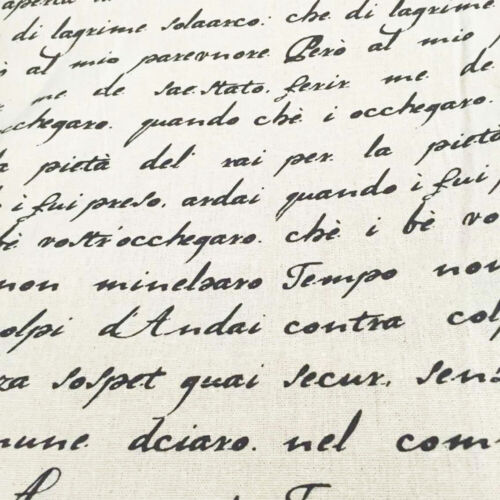 di lagrime solaarco: che di lagrime
al mio parevnore Però al mio
me de sae.stato. ferir me de
chegaro. quando chè i occhegaro.
pietà del' rai per la pietà
i fui preso, ardai quando i fui
bè vostr'occhegaro. chè i bè vo
non minelsaro Tempo non
olpi d'Andai contra colp
za sospet quai secur, sens
mune. dciaro. nel com